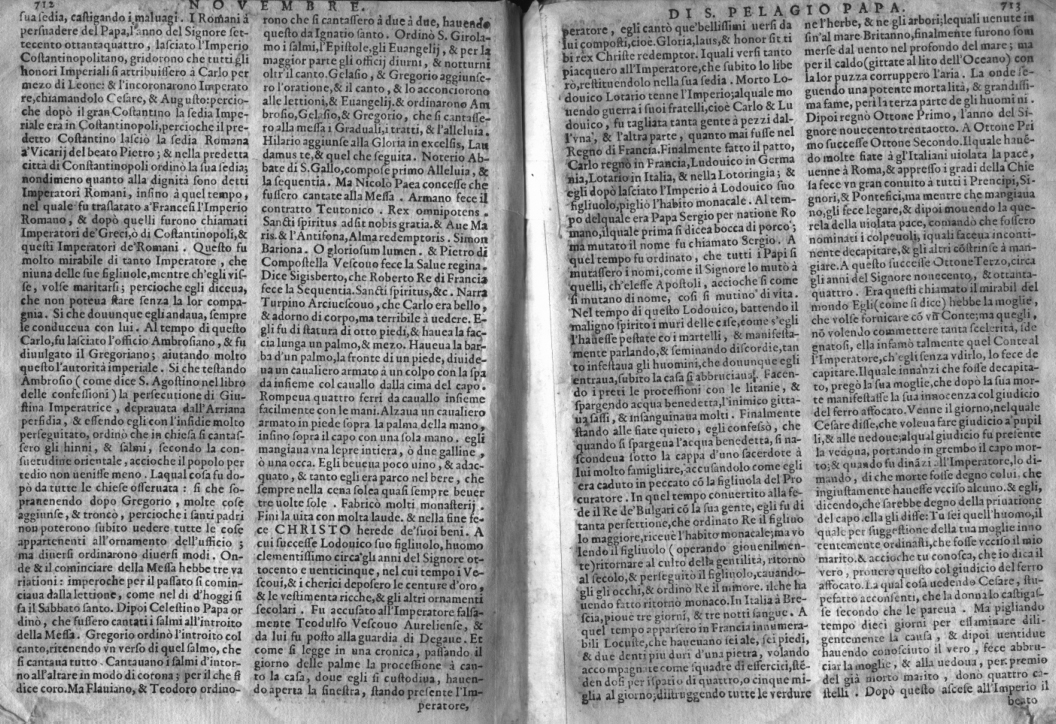 712 NOVEMBRE.
sua sedia, castigando i maluagi. I Romani à
persuadere del Papa, l'anno del Signore set-
tecento ottantaquattro, lasciato l'Imperio
Costantinopolitano, gridorono che tutti gli
honori Imperiali si attribuissero à Carlo per
mezo di Leone: & l'incoronarono Imperato
re, chiamandolo Cesare, & Augusto: percio-
che dopò il gran Costantino la sedia Impe-
riale era in Costantinopoli, percioche il pre-
detto Costantino lasciò la sedia Romana
a'Vicarij del beato Pietro; & nella predetta
città di Constantinopoli ordinò la sua sedia;
nondimeno quanto alla dignità sono detti
Imperatori Romani, insino à quel tempo,
nel quale fu traslatato a'Francesi l'Imperio
Romano, & dopò quelli furono chiamati
Imperatori de'Greci, ò di Costantinopoli, &
questi Imperatori de'Romani. Questo fu
molto mirabile di tanto Imperatore, che
niuna delle sue figliuole, mentre ch'egli vis-
se, volse maritarsi; percioche egli diceua,
che non poteua stare senza la lor compa-
gnia. Si che douunque egli andaua, sempre
le conduceua con lui. Al tempo di questo
Carlo, fu lasciato l'officio Ambrosiano, & fu
diuulgato il Gregoriano; aiutando molto
questo l'autorità imperiale. Si che testando
Ambrosio (come dice S. Agostino nel libro
delle confessioni) la persecutione di Giu-
stina Imperatrice, deprauata dall'Arriana
perfidia, & essendo egli con l'insidie molto
perseguitato, ordinò che in chiesa si cantas-
sero gli hinni, & salmi, secondo la con-
suetudine orientale, accioche il popolo per
tedio non uenisse meno. Laqual cosa fu do-
pò da tutte le chiese osseruata: si che so-
prauenendo dopo Gregorio, molte cose
aggiunse, & troncò, percioche i santi padri
non poterono subito uedere tutte le cose
appartenenti all'ornamento dell'ufficio;
ma diuersi ordinarono diuersi modi. On-
de & il cominciare della Messa hebbe tre va
riationi: imperoche per il passato si comin-
ciaua dalla lettione, come nel dì d'hoggi si
fa il Sabbato santo. Dipoi Celestino Papa or
dinò, che fussero cantati i salmi all'introito
della Messa. Gregorio ordinò l'introito col
canto, ritenendo vn verso di quel salmo, che
si cantaua tutto. Cantauano i salmi d'intor-
no all'altare in modo di corona; per il che si
dice coro. Ma Flauiano, & Teodoro ordino-
rono che si cantassero à due à due, hauendo
questo da Ignatio santo. Ordinò S. Girola-
mo i salmi, l'Epistole, gli Euangelij, & per la
maggior parte gli officij diurni, & notturni
oltr'il canto. Gelasio, & Gregorio aggiunse-
ro l'oratione, & il canto, & lo acconciorono
alle lettioni, & Euangelij. & ordinarono Am
brosio, Gelasio, & Gregorio, che si cantasse-
ro alla messa i Graduali, i tratti, & l'alleluia.
Hilario aggiunse alla Gloria in excelsis, Lau
damus te, & quel che seguita. Noterio Ab-
bate di S. Gallo, compose primo Alleluia, &
la sequentia. Ma Nicolò Paea concesse che
fussero cantate alla Messa. Armano fece il
contratto Teutonico. Rex omnipotens.
Sancti spiritus adsit nobis gratia. & Aue Ma
ris. & l'Antifona, Alma redemptoris. Simon
Bariona. O gloriosum lumen. & Pietro di
Compostella Vescouo fece la Salue regina.
Dice Sigisberto, che Roberto Re di Francia
fece la Sequentia. Sancti spiritus, &c. Narra
Turpino Arciuescouo, che Carlo era bello,
& adorno di corpo, ma terribile à uedere. E-
gli fu di statura di otto piedi, & hauea la fac-
cia lunga un palmo, & mezo. Haueua la bar-
ba d'un palmo, la fronte di un piede, diuide-
ua un caualiero armato à un colpo con la spa
da insieme col cauallo dalla cima del capo.
Rompeua quattro ferri da cauallo insieme
facilmente con le mani. Alzaua un caualiero
armato in piede sopra la palma della mano,
insino sopra il capo con una sola mano. egli
mangiaua vna lepre intiera, ò due galline,
ò una occa. Egli beueua poco uino, & adac-
quato, & tanto egli era parco nel bere, che
sempre nella cena solea quasi sempre beuer
tre uolte sole. Fabricò molti monasterij.
Finì la uita con molta laude. & nella fine fe-
ce CHRISTO herede de'suoi beni. A
cui successe Lodouico suo figliuolo, huomo
clementissimo circa gli anni del Signore ot-
tocento e uenticinque, nel cui tempo i Ve-
scoui, & i cherici deposero le centure d'oro,
& le vestimenta ricche, & gli altri ornamenti
secolari. Fu accusato all'Imperatore falsa-
mente Teodulfo Vescouo Aureliense, &
da lui fu posto alla guardia di Degaue. Et
come si legge in una cronica, passando il
giorno delle palme la processione à can-
to la casa, doue egli si custodiua, hauen-
do aperta la finestra, stando presente l'Im-
peratore,
DI S. PELAGIO PAPA. 713
peratore, egli cantò que'bellissimi uersi da
lui composti, cioè. Gloria, laus, & honor sit ti
bi rex Christe redemptor. Iquali versi tanto
piacquero all'Imperatore, che subito lo libe
rò, restituendolo nella sua sedia. Morto Lo-
douico Lotario tenne l'Imperio; alquale mo
uendo guerra i suoi fratelli, cioè Carlo & Lu
douico, fu tagliata tanta gente à pezzi dal-
l'vna, & l'altra parte, quanto mai fusse nel
Regno di Francia. Finalmente fatto il patto,
Carlo regnò in Francia, Ludouico in Germa
nia, Lotario in Italia, & nella Lotoringia; &
egli dopò lasciato l'Imperio à Lodouico suo
figliuolo, pigliò l'habito monacale. Al tem-
po delquale era Papa Sergio per natione Ro
mano, ilquale prima si dicea bocca di porco;
ma mutato il nome fu chiamato Sergio. A
quel tempo fu ordinato, che tutti i Papi si
mutassero i nomi, come il Signore lo mutò à
quelli, ch'elesse Apostoli, accioche si come
si mutano di nome, così si mutino di vita.
Nel tempo di questo Lodouico, battendo il
maligno spirito i muri delle case, come s'egli
l'hauesse pestate co i martelli, & manifesta-
mente parlando, & seminando discordie, tan
to infestaua gli huomini, che donunque egli
entraua, subito la casa si abbruciaua. Facen-
do i preti le processioni con le litanie, &
spargendo acqua benedetta, l'inimico gitta-
ua sassi, & insanguinaua molti. Finalmente
stando alle fiate quieto, egli confessò, che
quando si spargeua l'acqua benedetta, si na-
scondeua sotto la cappa d'uno sacerdote à
lui molto famigliare, accusandolo come egli
era caduto in peccato cō la figliuola del Pro
curatore. In quel tempo conuertito alla fe-
de il Re de'Bulgari cō la sua gente, egli fu di
tanta perfettione, che ordinato Re il figliuo
lo maggiore, riceuè l'habito monacale; ma vo
lendo il figliuolo (operando giouenilmen-
te) ritornare al culto della gentilità, ritornò
al secolo, & perseguitò il figliuolo, cauando-
gli gli occhi, & ordinò Re il minore. ilche ha
uendo fatto ritornò monaco. In Italia à Bre-
scia, pioue tre giorni, & tre notti sangue. A
quel tempo apparsero in Francia innumera-
bili Locuste, che haueuano sei ale, sei piedi,
& due denti più duri d'una pietra, volando
accompagnate come squadre di esserciti, stē-
dendosi per ispatio di quattro, o cinque mi-
glia al giorno; distruggendo tutte le verdure
ne l'herbe, & ne gli arbori; lequali uenute in
sin'al mare Britanno, finalmente furono som
merse dal uento nel profondo del mare; ma
per il caldo (gittate al lito dell'Oceano) con
la lor puzza corruppero l'aria. La onde se-
guendo una potente mortalità, & grandissi-
ma fame, perì la terza parte de gli huomini.
Dipoi regnò Ottone Primo, l'anno del Si-
gnore nouecento trentaotto. A Ottone Pri
mo successe Ottone Secondo. Ilquale hauē-
do molte fiate à gl'Italiani uiolata la pace,
uenne à Roma, & appresso i gradi della Chie
sa fece vn gran conuito à tutti i Prencipi, Si-
gnori, & Pontefici, ma mentre che mangiaua
no, gli fece legare, & dipoi mouendo la que-
rela della uiolata pace, comandò che fossero
nominati i colpeuoli, iquali faceua inconti-
nente decapitare, & gli altri cōstrinse à man-
giare. A questo successe Ottone Terzo, circa
gli anni del Signore nouecento, & ottanta-
quattro. Era questi chiamato il mirabil del
mondo. Egli (come si dice) hebbe la moglie,
che volse fornicare cō vn Conte; ma quegli,
nō volendo commettere tanta scelerità, ide
gnatosi, ella infamò talmente quel Conte al
l'Imperatore, ch'egli senza vdirlo, lo fece de
capitare. Ilquale innanzi che fosse decapita-
to, pregò la sua moglie, che dopò la sua mor-
te manifestasse la sua innocenza col giudicio
del ferro affocato. Venne il giorno, nelquale
Cesare disse, che voleua fare giudicio a'pupil
li, & alle uedoue; alqual giudicio fu presente
la vedoua, portando in grembo il capo mor-
to; & quando fu dināzi all'Imperatore, lo di-
mandò, di che morte fosse degno colui, che
ingiustamente hauesse vcciso alcuno. & egli,
dicendo, che sarebbe degno della priuatione
del capo. ella gli disse: Tu sei quell'huomo, il
quale per suggestione della tua moglie inno
centemente ordinasti, che fosse vcciso il mio
marito. & accioche tu conosca, che io dica il
vero, prouero questo col giudicio del ferro
affocato. La qual cosa uedendo Cesare, stu-
pefatto acconsentì, che la donna lo castigas-
se secondo che le pareua. Ma pigliando
tempo dieci giorni per essaminare dili-
gentemente la causa, & dipoi uentidue
hauendo conosciuto il vero, fece abbru-
ciar la moglie, & alla uedoua, per premio
del già morto marito, dono quattro ca-
stelli. Dopò questo ascese all'Imperio il
beato